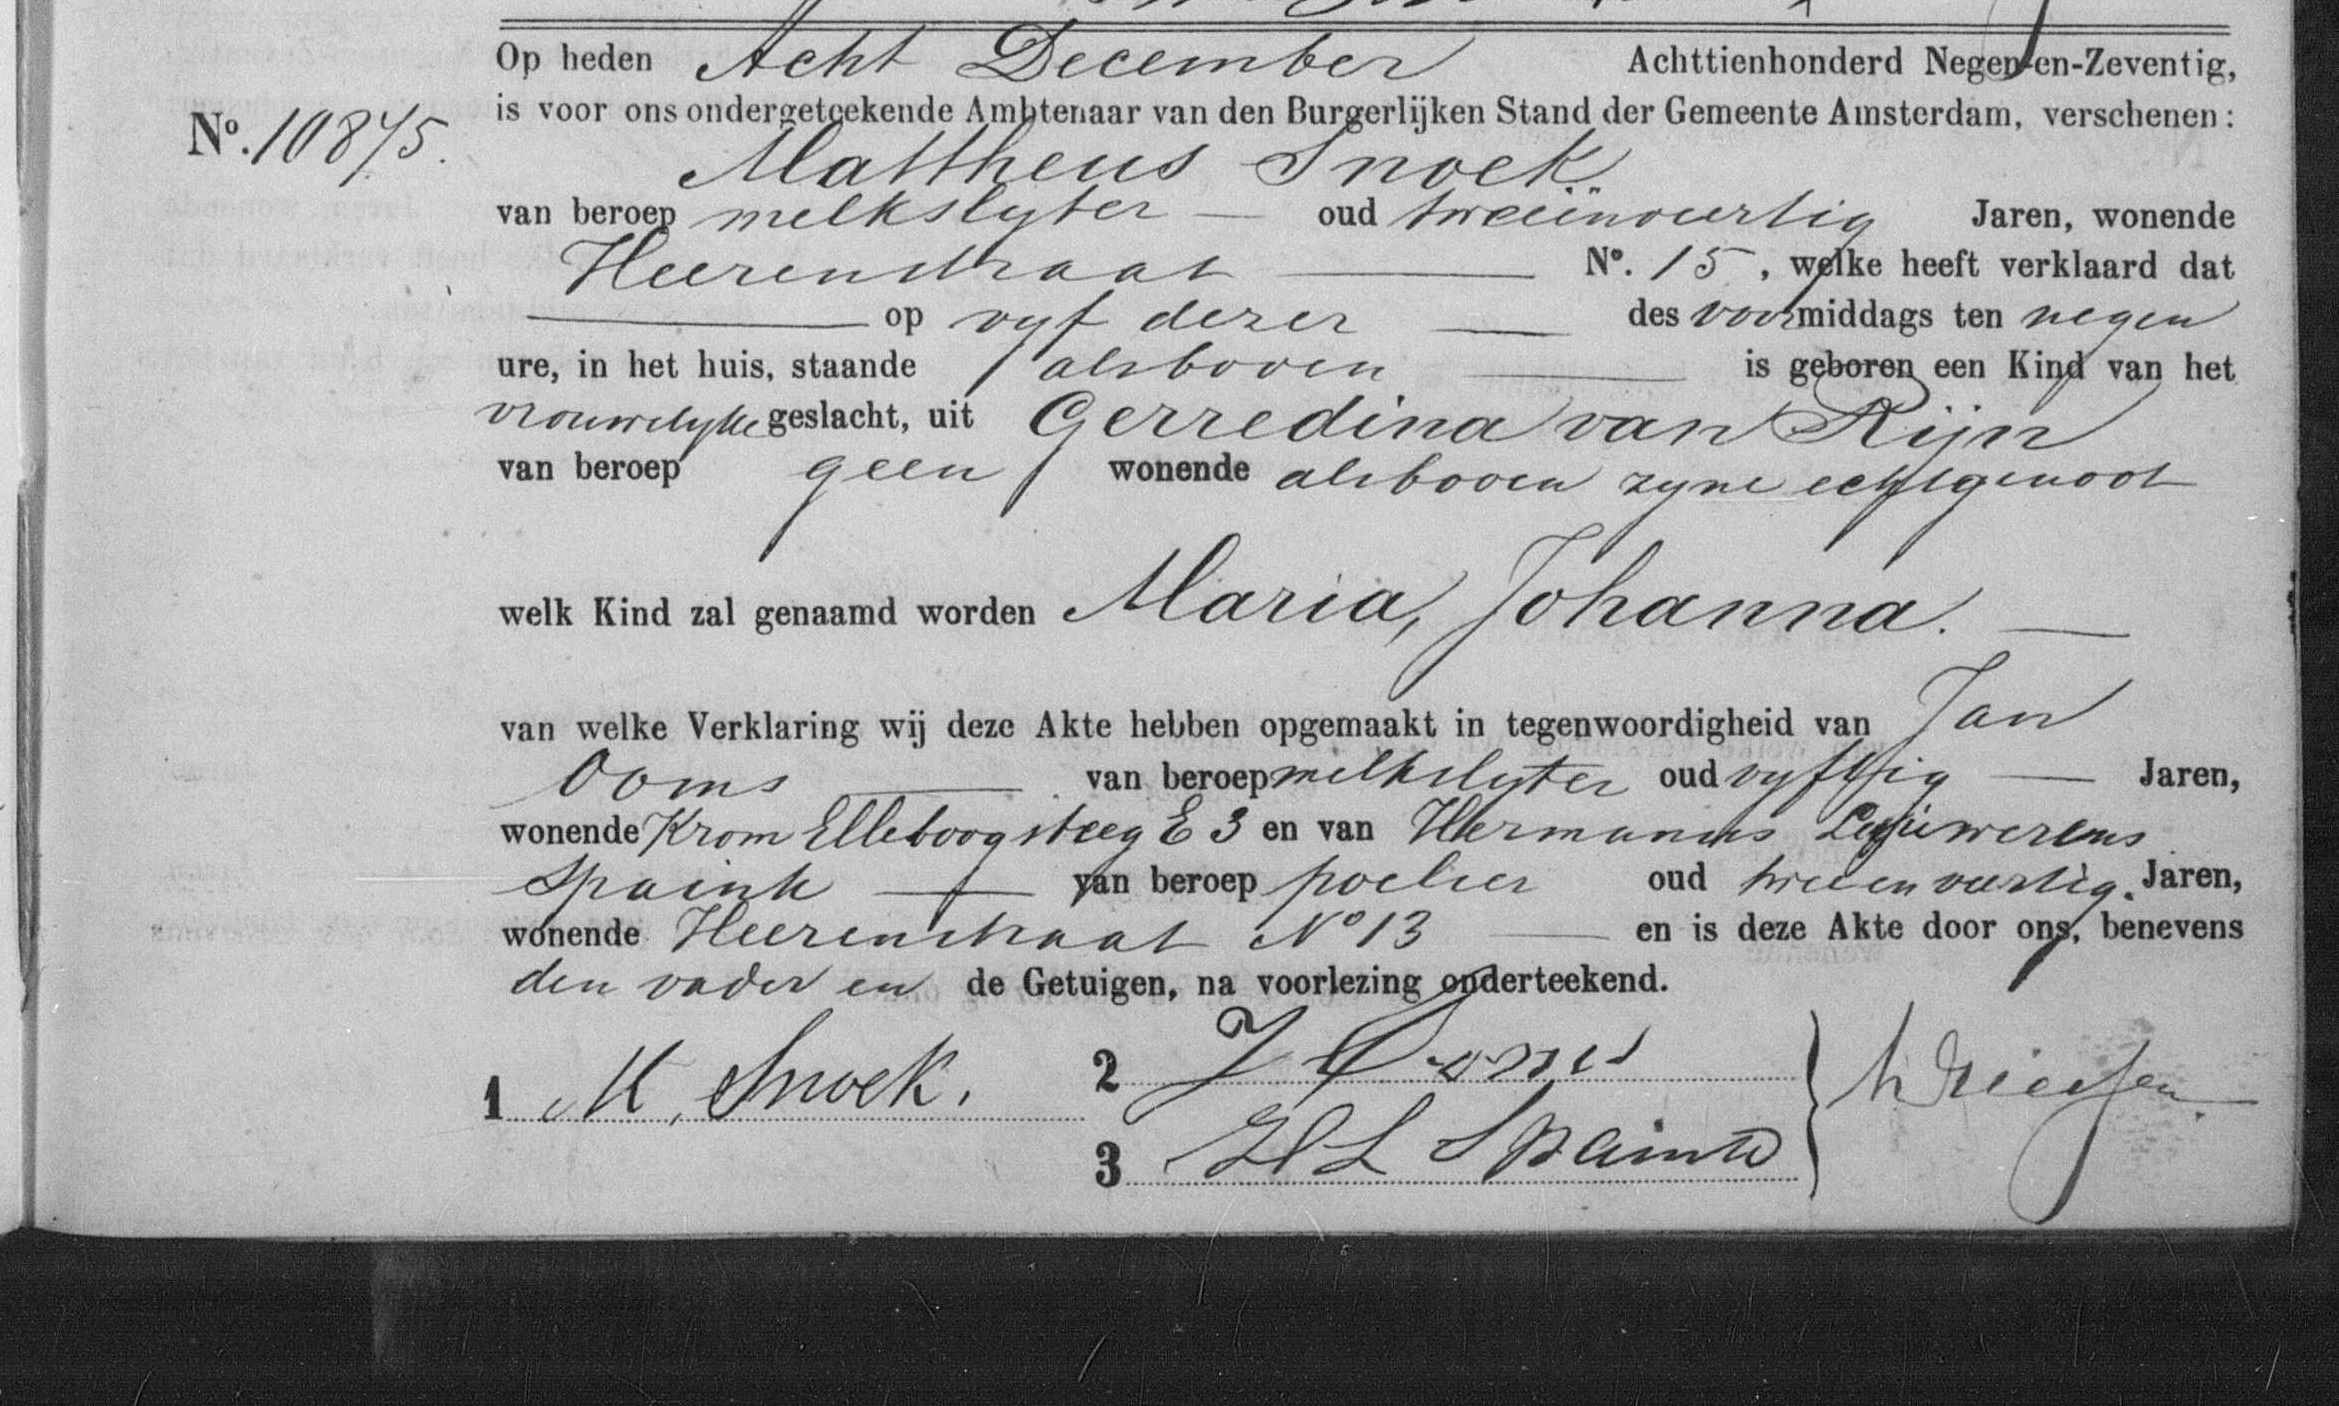 Op heden Acht December Achttienhonderd Negen-en-Zeventig,
is voor ons ondergeteekende Ambtenaar van den Burgerlijken Stand der Gemeente Amsterdam, verschenen:
No. 10875.
Mattheus Snoek
van beroep melkslyter — oud tweeënveertig Jaren, wonende
Heerenstraat — No. 15, welke heeft verklaard dat
— op vyf dezer — des voormiddags ten negen
ure, in het huis, staande alsboven — is geboren een Kind van het
vrouwelyke geslacht, uit Gerredina van Rijn
van beroep geen wonende alsboven zyne echtgenoot
welk Kind zal genaamd worden Maria, Johanna. —
van welke Verklaring wij deze Akte hebben opgemaakt in tegenwoordigheid van Jan
Ooms — van beroep melkslyter oud vyftig — Jaren,
wonende Krom Elleboogsteeg E 3 en van Hermanus
Spaink — van beroep poelier oud tweeenveertig. Jaren,
wonende Heerenstraat No 13 — en is deze Akte door ons, benevens
den vader en de Getuigen, na voorlezing onderteekend.
1 M. Snoek.
2 J Ooms
3 H L Spaink